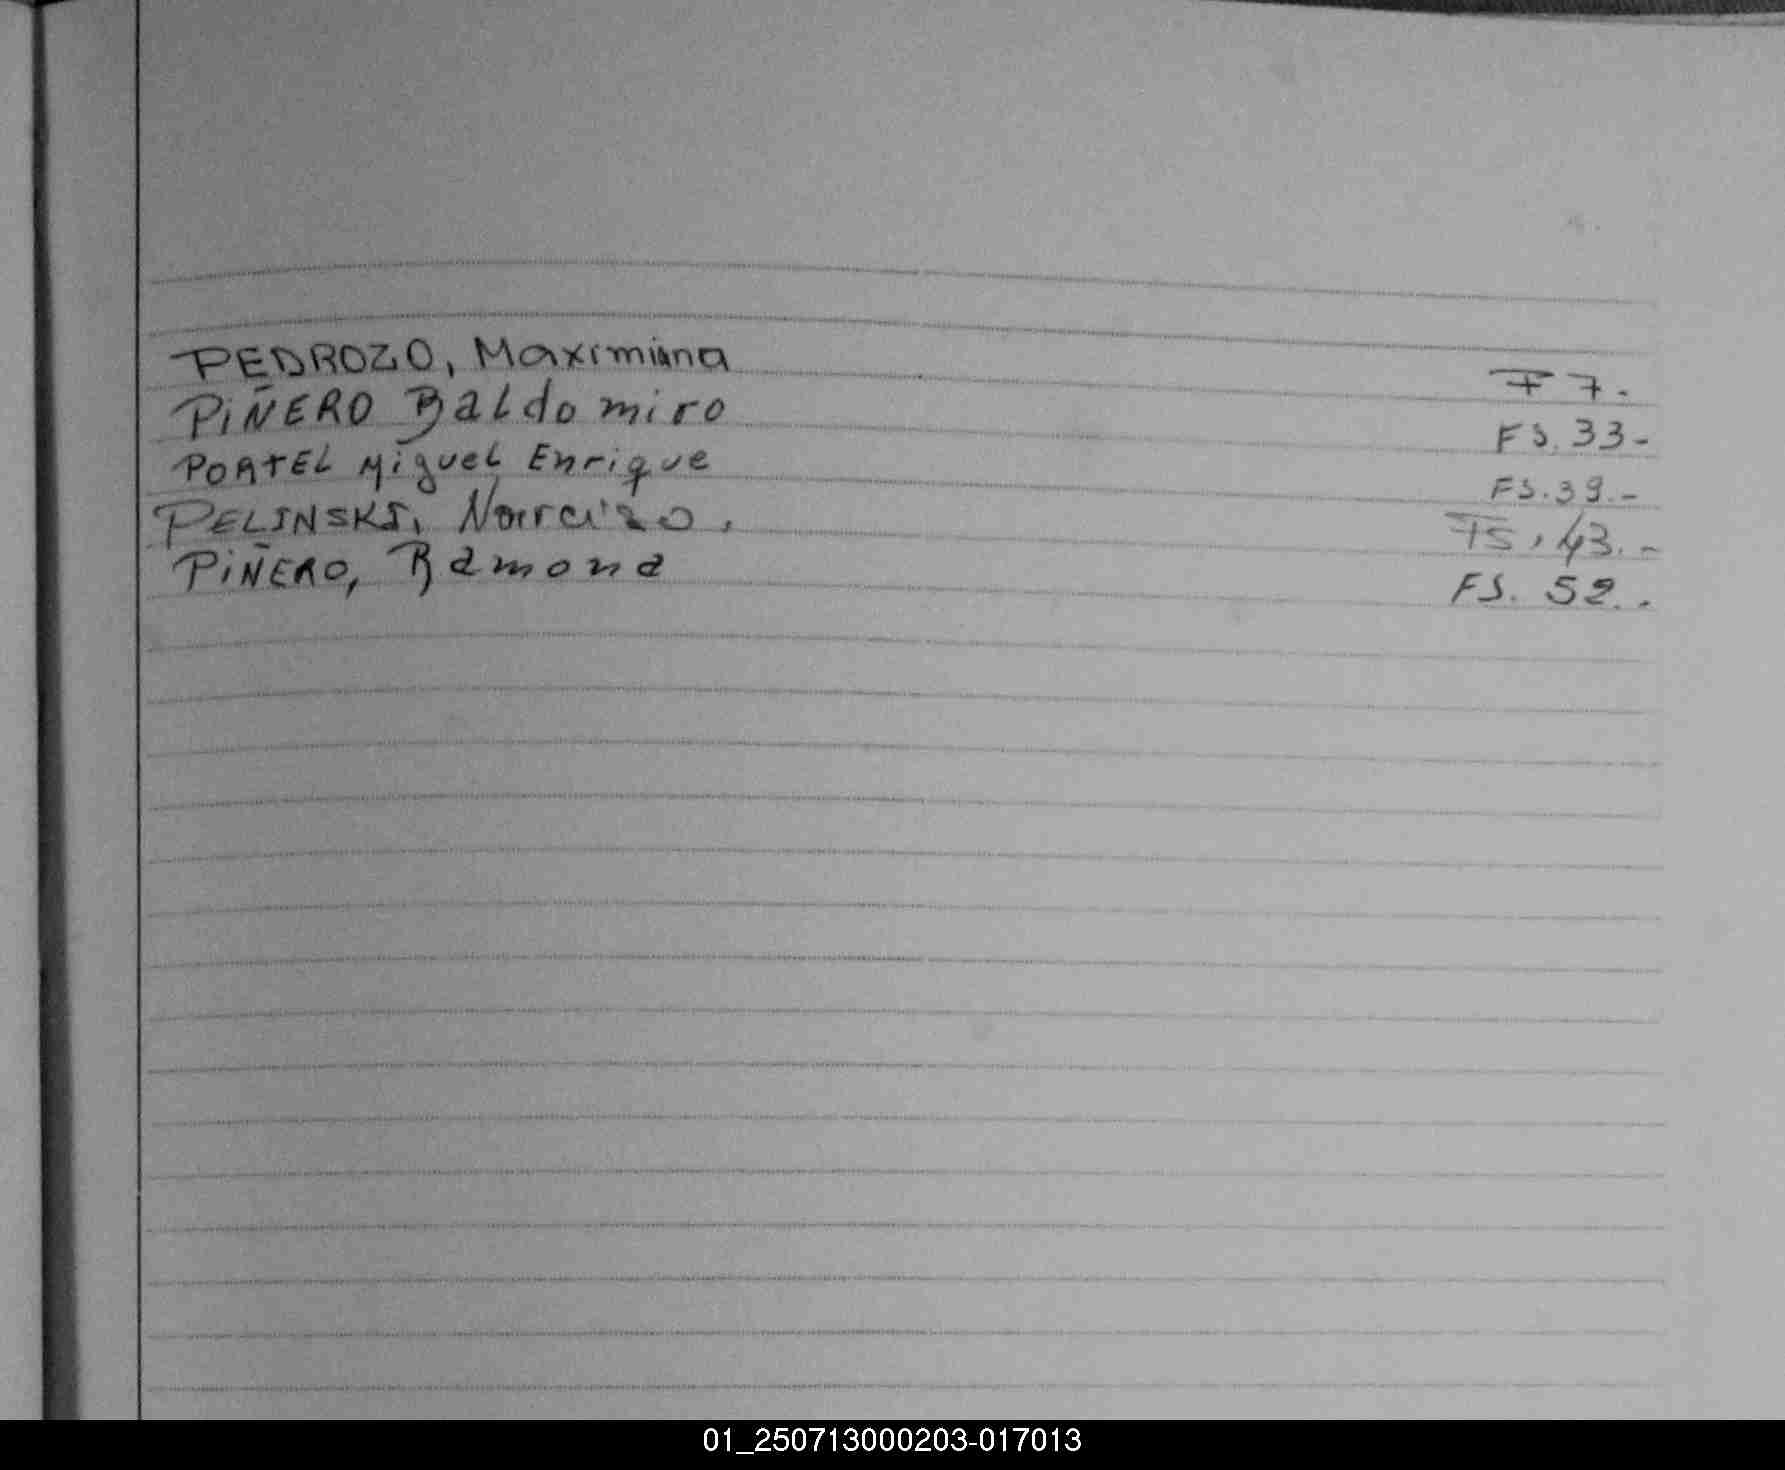 PEDROZO, Maximiana F 7.
PIÑERO Baldomiro FS. 33-
PORTEL Miguel Enrique FS. 39.-
PELINSKI, Narcizo. FS. 43.-
PIÑERO, Ramona FS. 52..
01_250713000203-017013